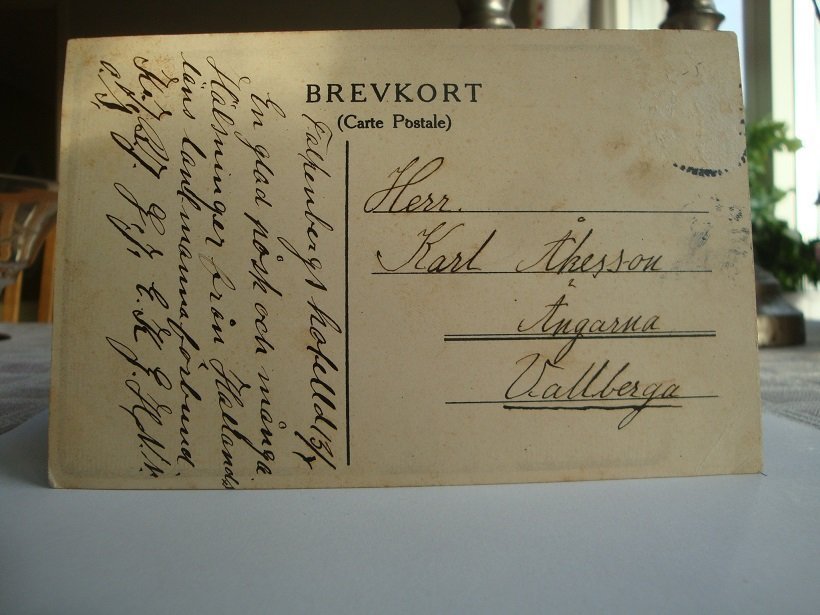 BREVKORT
(Carte Postale)
Falkenbergs hotell d 13/7
En glad påsk och många
Hälsningar från Hallands
läns lantmannaförbund.
Herr.
Karl Åkesson
Ängarna
Vallberga